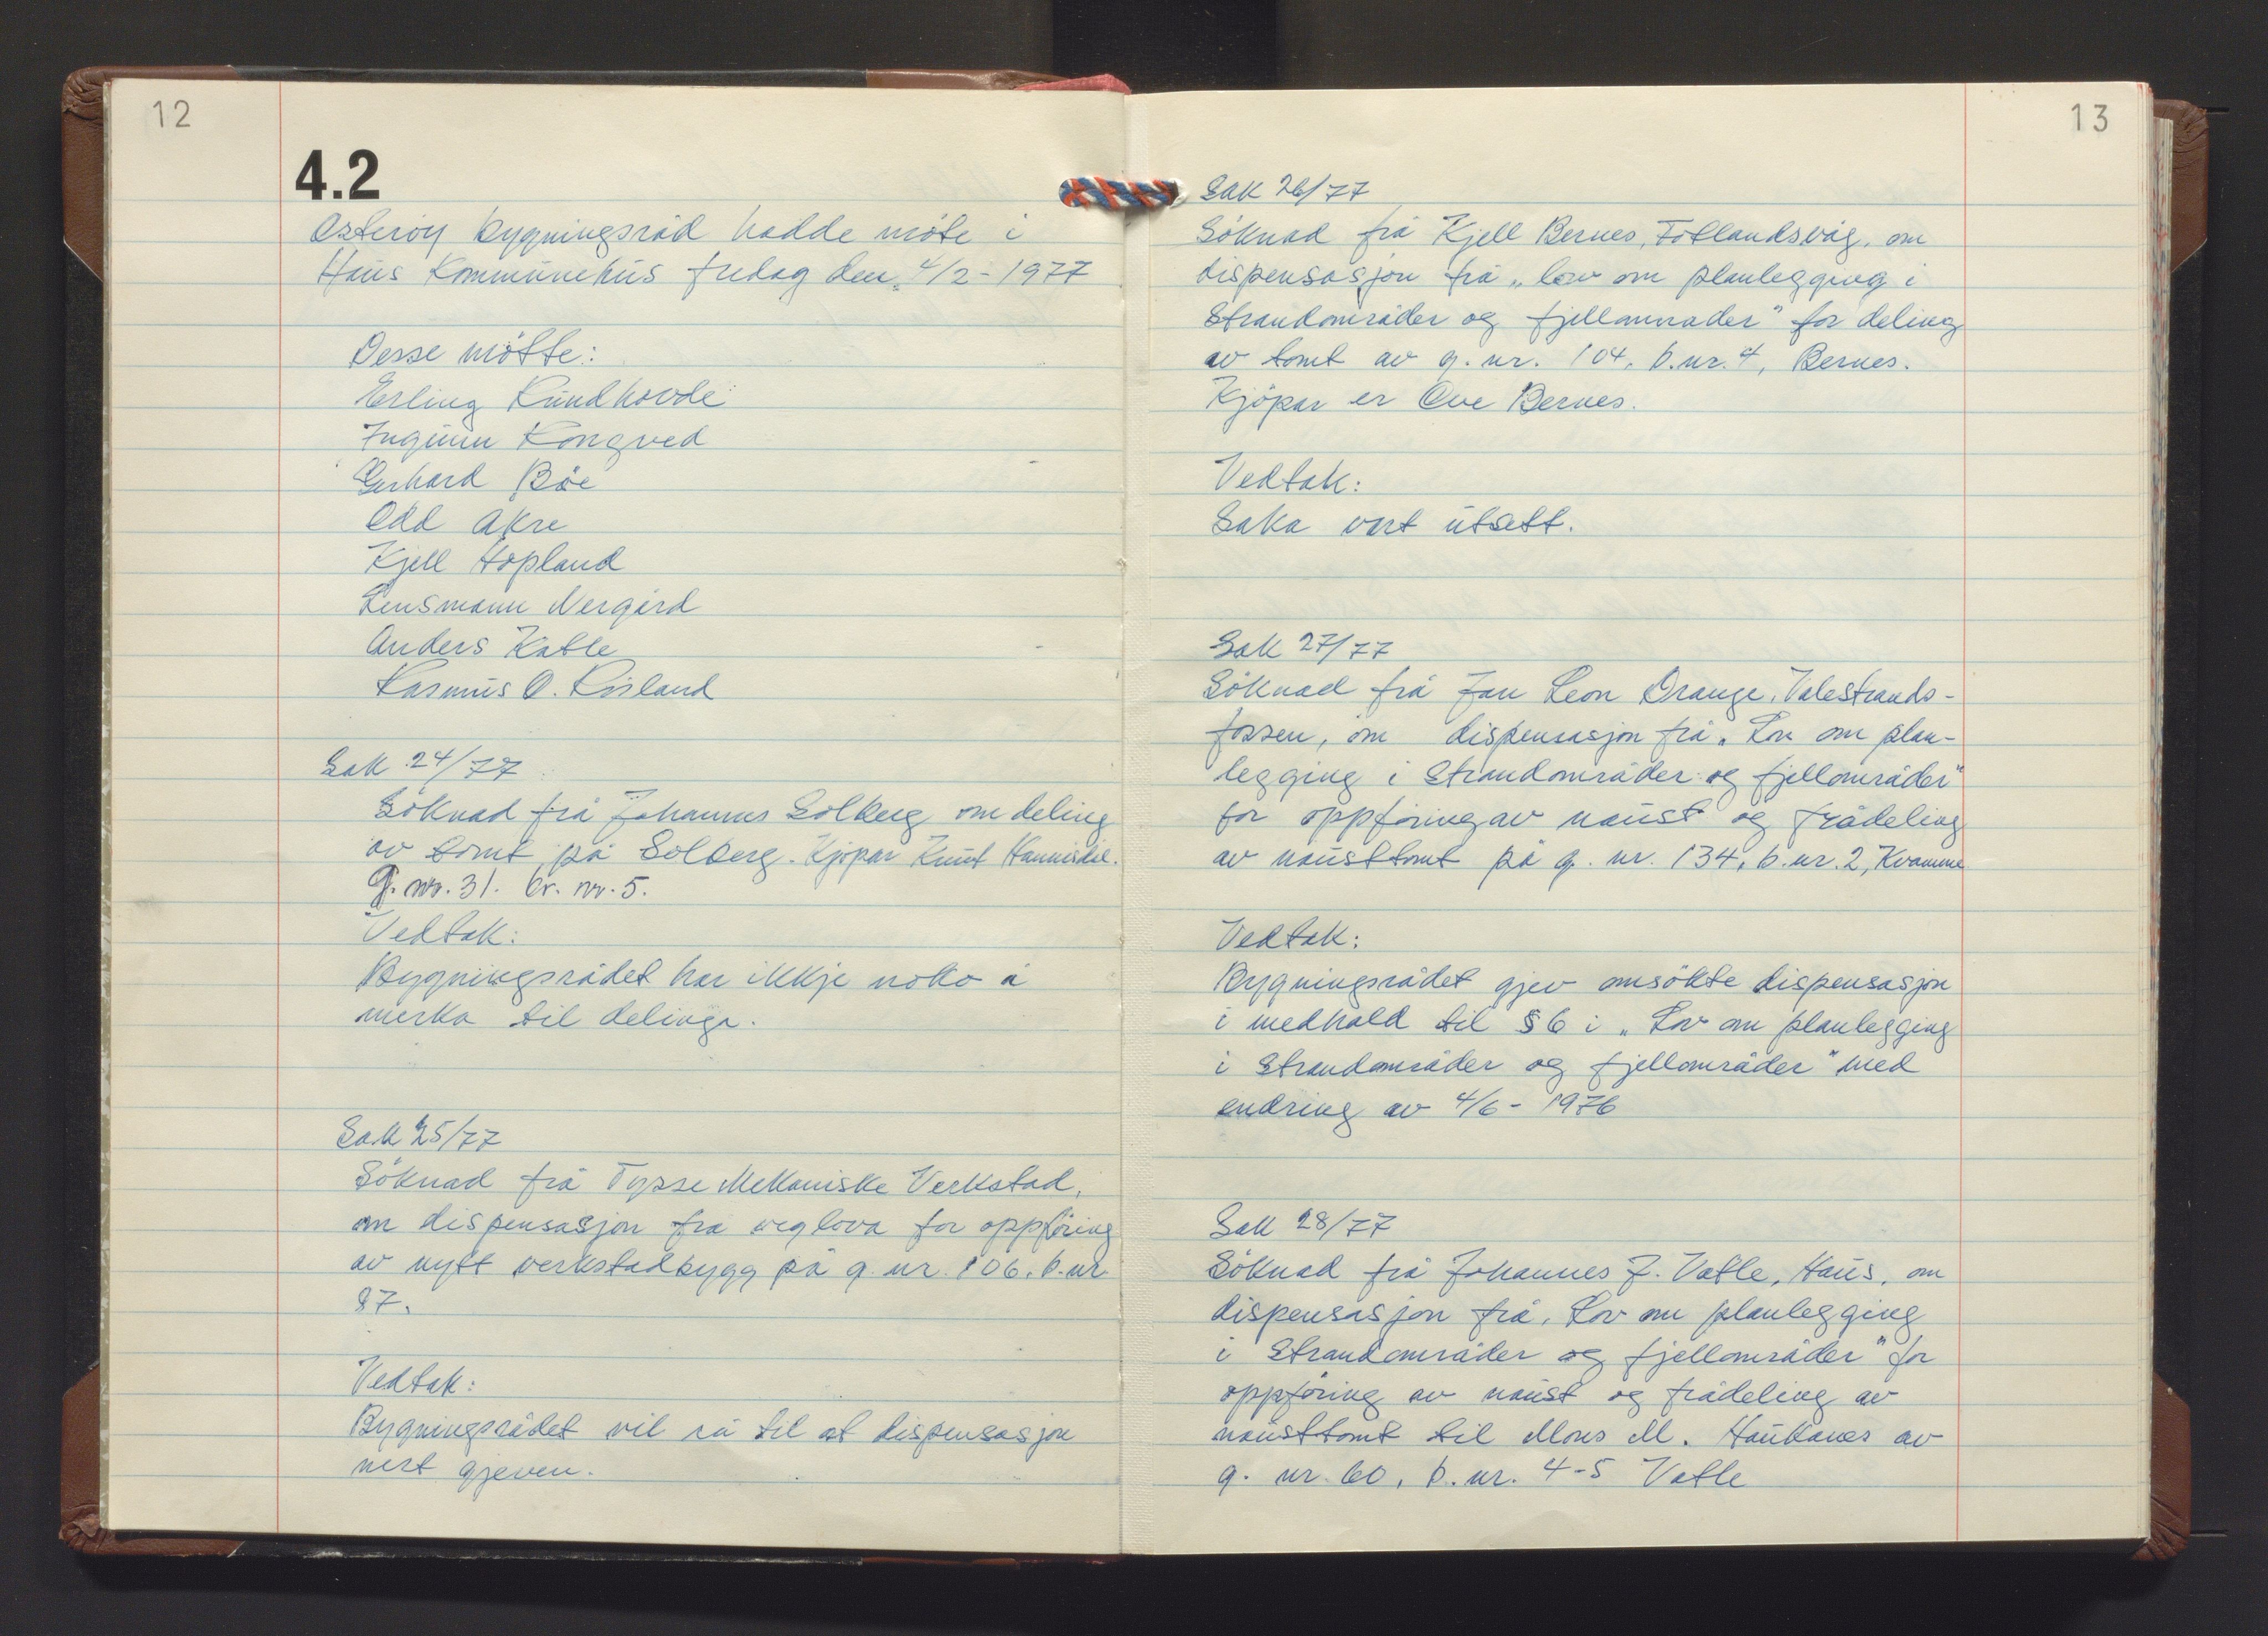 12
4.2
Osterøy bygningsråd hadde möte i
Haus Kommunehus fredag den 4/2-1977
Desse mötte:
Erling Rundhovde
Ingunn Kongsved
Gerhard Böe
Odd Åkre
Kjell Hopland
Lensmann Nergård
Anders Katle
Rasmus O. Risland
Sak 24/77
Söknad frå Johannes Solberg om deling
av tomt på Solberg. Kjöpar Knut Hannisdal.
G. nr. 31. br. nr. 5.
Vedtak:
Bygningsrådet har ikkje noko å
merka til delinga.
Sak 25/77
Söknad frå Tysse Mekaniske Verkstad,
om dispensasjon fra veglova for oppföring
av nytt verkstadbygg på g. nr. 106, b. nr
87.
Vedtak:
Bygningsrådet vil rå til at dispensasjon
vert gjeven.
13
Sak 26/77
Söknad frå Kjell Bernes, Fotlandsvåg, om
dispensasjon frå „lov om planlegging i
strandområder og fjellområder" for deling
av tomt av g. nr. 104, b. nr. 4, Bernes.
Kjöpar er Ove Bernes.
Vedtak:
Saka vart utsett.
Sak 27/77
Söknad frå Jan Leon Drange, Valestrands-
fossen, om dispensasjon frå „Lov om plan-
legging i strandområder og fjellområder"
for oppföring av naust og frådeling
av nausttomt på g. nr. 134, b. nr. 2, Kvamme
Vedtak:
Bygningsrådet gjev omsökte dispensasjon
i medhald til § 6 i „Lov om planlegging
i strandområder og fjellområder" med
endring av 4/6-1976
Sak 28/77
Söknad frå Johannes J. Vatle, Haus, om
dispensasjon frå „Lov om planlegging
i strandområder og fjellområder" for
oppföring av naust og frådeling av
nausttomt til Mons M. Haukanes av
g. nr. 60, b. nr. 4-5 Vatle